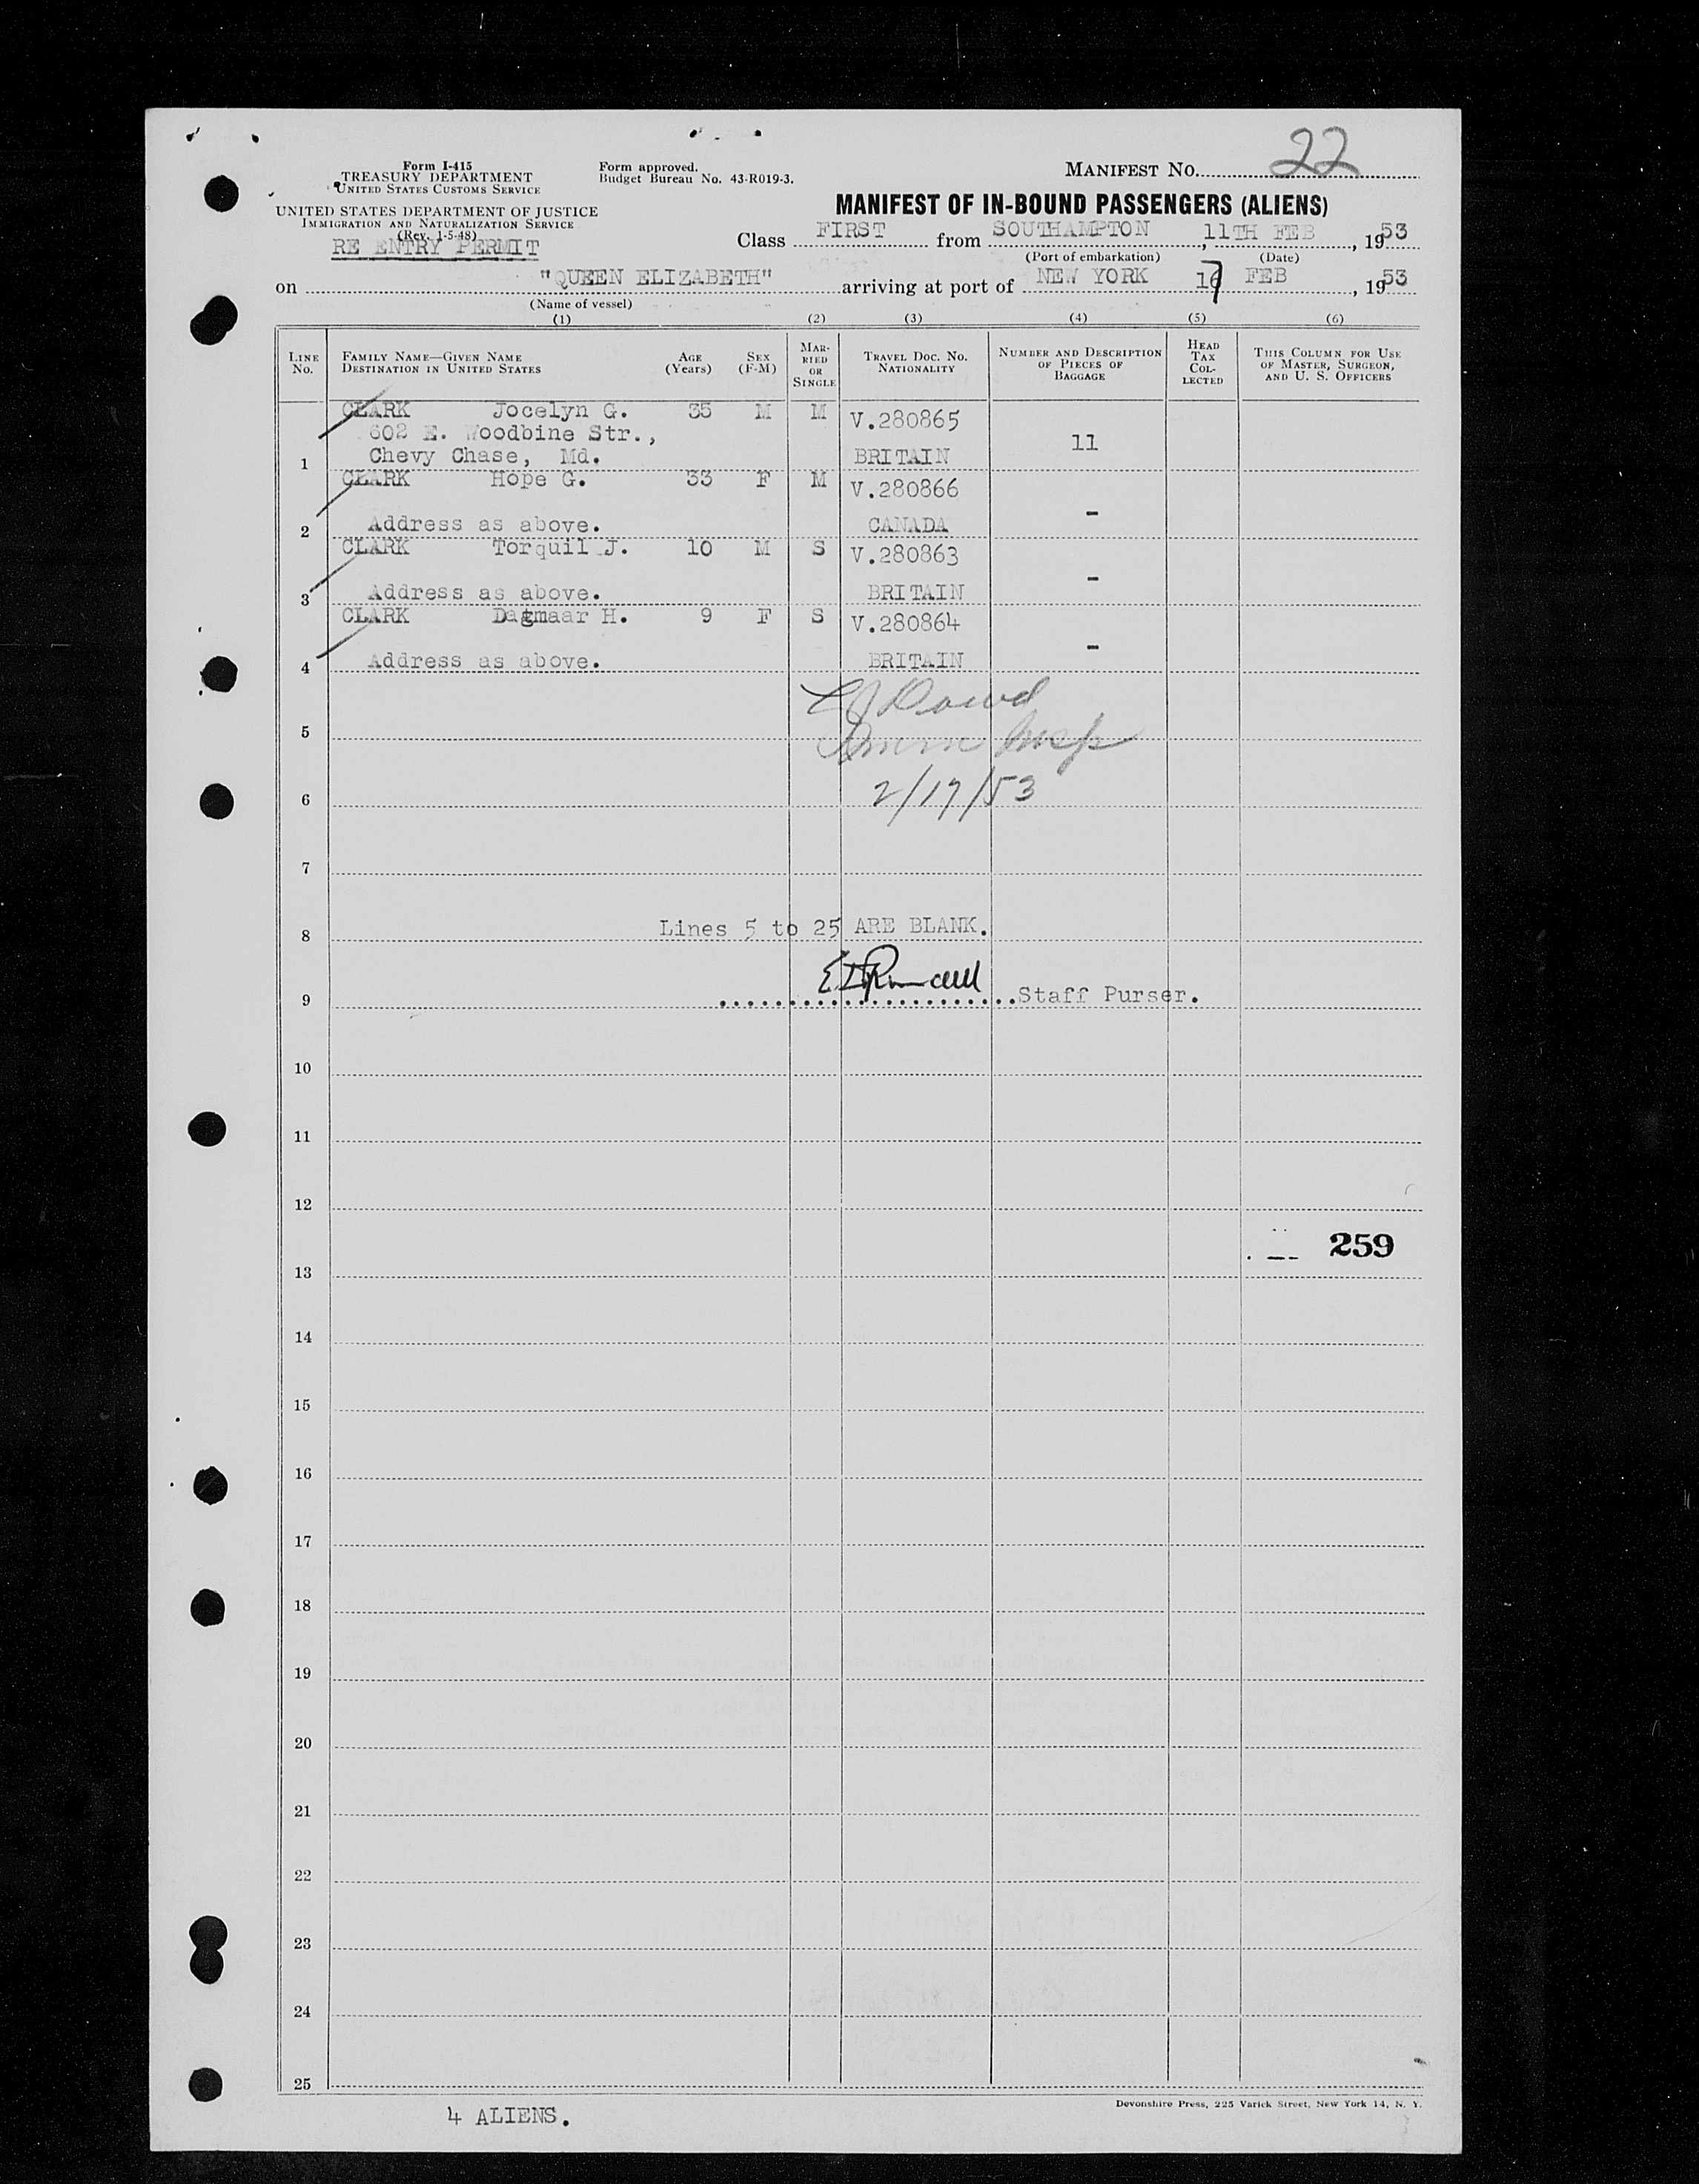 22
Form I-415
TREASURY DEPARTMENT
UNITED STATES CUSTOMS SERVICE
Form approved.
Budget Bureau No. 43-R019-3.
MANIFEST No.
UNITED STATES DEPARTMENT OF JUSTICE
IMMIGRATION AND NATURALIZATION SERVICE
(Rev. 1-5-48)
RE ENTRY PERMIT
MANIFEST OF IN-BOUND PASSENGERS (ALIENS)
Class FIRST from SOUTHAMPTON, 11TH FEB, 1953
(Port of embarkation) (Date)
on "QUEEN ELIZABETH" arriving at port of NEW YORK 17 FEB, 1953
(Name of vessel)
(1) (2) (3) (4) (5) (6)
LINE No. FAMILY NAME—GIVEN NAME DESTINATION IN UNITED STATES AGE (Years) SEX (F-M) MARRIED OR SINGLE TRAVEL DOC. NO. NATIONALITY NUMBER AND DESCRIPTION OF PIECES OF BAGGAGE HEAD TAX COLLECTED THIS COLUMN FOR USE OF MASTER, SURGEON, AND U. S. OFFICERS
CLARK Jocelyn G. 35 M M V.280865
602 E. Woodbine Str.,
1 Chevy Chase, Md. BRITAIN 11
CLARK Hope G. 33 F M V.280866
2 Address as above. CANADA -
CLARK Torquil J. 10 M S V.280863
3 Address as above. BRITAIN -
CLARK Dagmaar H. 9 F S V.280864
4 Address as above. BRITAIN -
EJ Dowd
5 Imm Insp
6 2/17/53
7
8 Lines 5 to 25 ARE BLANK.
9 Staff Purser.
10
11
12
259
13
14
15
16
17
18
19
20
21
22
23
24
25
4 ALIENS.
Devonshire Press, 225 Varick Street, New York 14, N. Y.